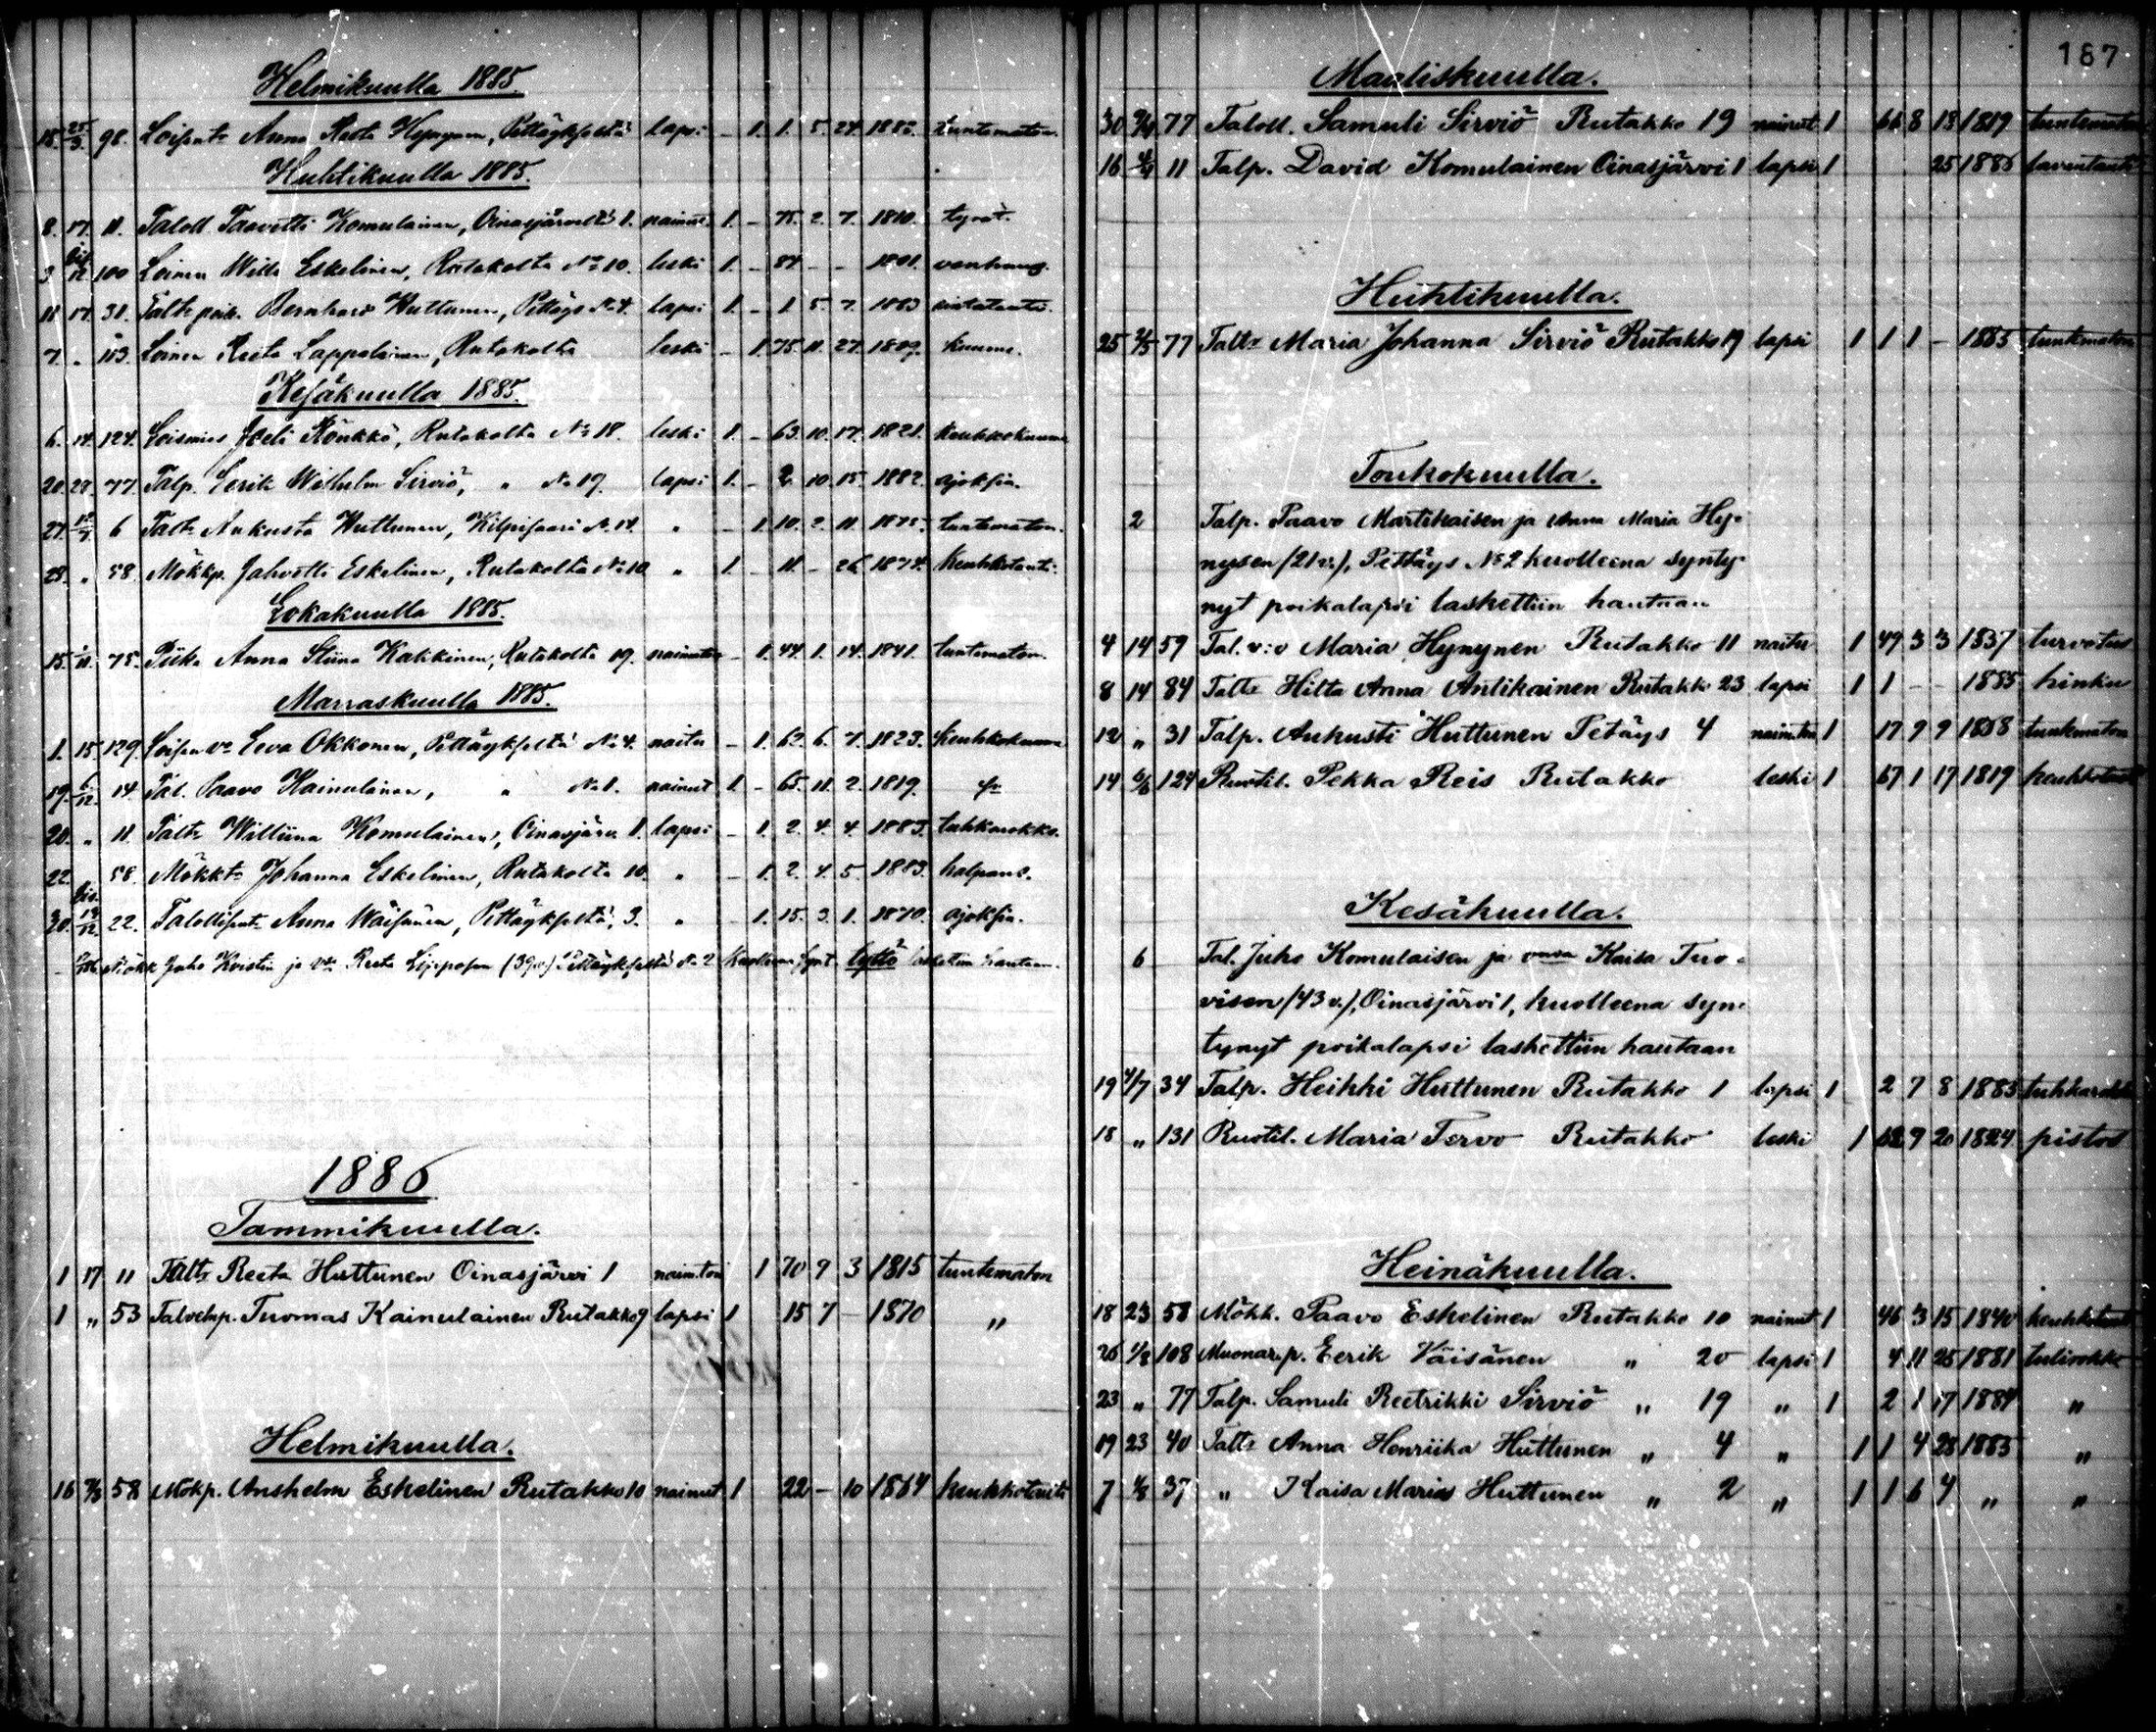 Helmikuulla 1885.
15. 25/3. 98. Loisent: Anna Reeta Hynynen, Pettäykseltä lapsi - 1. 1. 5. 24. 1883. tuntematon.
Huhtikuulla 1885.
8. 17. 11. Taloll Taavetti Komulainen, Oinasjärveltä 1. nainut 1. - 75. 2. 7. 1810. tyrat.
3 12. 100 Loinen Eskelinen, Rutakolta No 10. leski 1. - 84 - - 1801. vanhuus.
11 17. 31. Talk poik. Bernhard Huttunen, Pettäys No 4. lapsi 1. - 1 5. 7. 1883
7. „ 103. Loinen Reeta Lappalainen, Rutakolta leski - 1. 75. 11. 27. 1809. kuume.
Kesäkuulla 1885.
6. 14. 124. Loismies Rönkkö, Rutakolta No 18. leski 1. - 63. 10. 17. 1821. keuhkokuume
20. 28. 77. Talp. Eerik Wilhelm Sirviö, „ No 19. lapsi 1. - 2 10. 15. 1882. ajoksia.
27. 6 Talt: Aukusta Huttunen, Kilpisaari No 14. „ - 1. 10. 2. 11. 1875. tuntematon.
28. „ 58. Mökkp. Jahvetti Eskelinen, Rutakolta No 10 „ 1. - 11 - 26 1874. keuhkotauti.
Lokakuulla 1885.
15. 75. Piika Anna Stiina Kakkinen, Rutakolta 19. naimaton - 1. 44. 1. 14. 1841. tuntematon.
Marraskuulla 1885.
1. 15. 129. Loisen v: Eeva Okkonen, Pettäykseltä No 4. naitu - 1. 62. 6. 7. 1823. keuhkokuume
19. 6/12. 14. Tal. Paavo Kainulainen, „ No 1. nainut 1. - 65. 11. 2. 1819.
20. „ 11. Talt: Williina Komulainen, Oinasjärvi 1. lapsi - 1. 2. 4. 4. 1883. tuhkarokko.
22. 58. Mökkt: Johanna Eskelinen, Rutakolta 10. „ - 1. 2. 4. 5. 1883. halpaus.
30. 13/12. 22. Talollisent: Anna Wäisänen, Pettäykseltä, 3. „ - 1. 15. 3. 1. 1870. ajoksia.
Mökk Juho Kvistin ja v: Reeta (39v) Pettäykseltä No 2 kuolleena synt. tyttö laskettiin hautaan.
1886
Tammikuulla.
1 17 11 Talt: Reeta Huttunen Oinasjärvi 1 naim.ton 1 70 9 3 1815 tuntematon
1 „ 53 Talonp. Tuomas Kainulainen Rutakko 9 lapsi 1 15 7 - 1870 „
Helmikuulla.
16 58 Mökp. Anshelm Eskelinen Rutakko 10 nainut 1 22 - 10 1864 keuhkotauti
187
Maaliskuulla.
30 77 Taloll. Samuli Sirviö Rutakko 19 nainut 1 66 8 13 1819 tuntematon
16 11 Talp. David Komulainen Oinasjärvi 1 lapsi 1 25 1886
Huhtikuulla.
25 2/5 77 Talt: Maria Johanna Sirviö Rutakko 19 lapsi 1 1 1 - 1885 tuntematon
Toukokuulla.
2 Talp. Paavo Martikaisen ja Anna Maria Hy-
nysen (21 v.), Pettäys No 2 kuolleena synty-
nyt poikalapsi laskettiin hautaan
4 14 59 Tal. v:o Maria Hynynen Rutakko 11 naitu 1 49 3 3 1837 turvotus
8 14 84 Talt: Hilta Anna Antikainen Rutakko 23 lapsi 1 1 - - 1885 hinku
12 „ 31 Talp. Aukusti Huttunen Petäys 4 naim.ton 1 17 9 9 1868 tuntematon
14 6/6 124 Ruotil. Pekka Reis Rutakko leski 1 67 1 17 1819 keuhkotauti
Kesäkuulla.
6 Tal. Juho Komulaisen ja Kaisa Tuo-
visen (43 v.), Oinasjärvi 1, kuolleena syn-
tynyt poikalapsi laskettiin hautaan
19 4/7 34 Talp. Heikki Huttunen Rutakko 1 lapsi 1 2 7 8 1883 tuhkarokko
18 „ 131 Ruotil. Maria Tervo Rutakko leski 1 62 9 20 1824 pistos
Heinäkuulla.
18 23 58 Mökk. Paavo Eskelinen Rutakko 10 nainut 1 46 3 15 1840 keuhkotauti
26 1/8 108 Muonar.p. Eerik Väisänen „ 20 lapsi 1 4 11 25 1881 tulirokko
23 „ 77 Talp. Samuli Reetrikki Sirviö „ 19 „ 1 2 1 17 1884 „
19 23 40 Talt: Anna Henriika Huttunen „ 4 „ 1 1 4 28 1885 „
7 1/8 37 „ Kaisa Maria Huttunen „ 2 „ 1 1 6 4 „ „